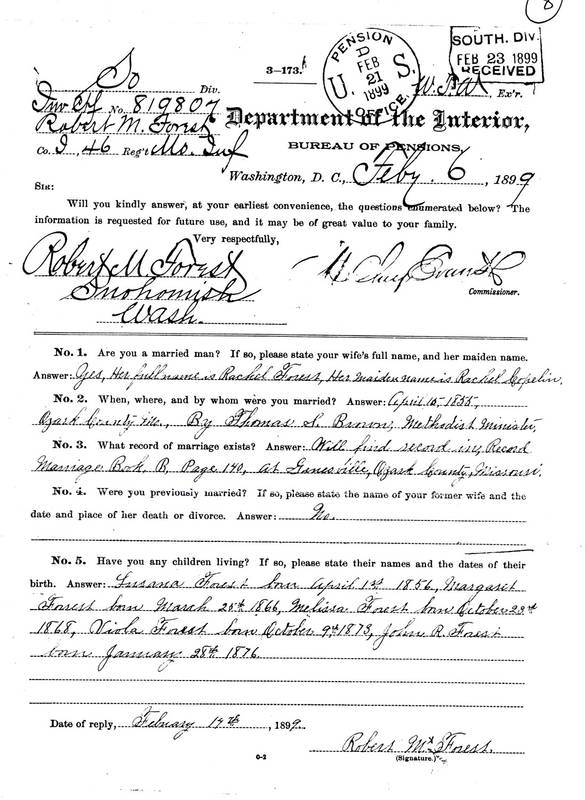 8
So Div.
3-173.
PENSION OFFICE U. S. FEB 21 1899
SOUTH. DIV.
FEB 23 1899
RECEIVED
Ex'r.
Inv Ctf No. 819807
Robert M. Forest
Department of the Interior,
Co. I, 46 Reg't Mo. Inf
BUREAU OF PENSIONS,
Washington, D. C., Feby. 6, 1899
SIR:
Will you kindly answer, at your earliest convenience, the questions enumerated below? The
information is requested for future use, and it may be of great value to your family.
Very respectfully,
Robert M Forest
Snohomish
Wash.
H. Clay Evans
Commissioner.
No. 1. Are you a married man? If so, please state your wife's full name, and her maiden name.
Answer: Yes, Her full name is Rachel Forest, Her Maiden name is Rachel Copelin.
No. 2. When, where, and by whom were you married? Answer: April 15, 1855,
Ozark County Mo., By Thomas S. Brown, Methodist Minister,
No. 3. What record of marriage exists? Answer: Will find record in Record
Marriage Book B, Page 140, at Gainesville, Ozark County, Missouri.
No. 4. Were you previously married? If so, please state the name of your former wife and the
date and place of her death or divorce. Answer: No.
No. 5. Have you any children living? If so, please state their names and the dates of their
birth. Answer: Susana Forest born April 1st 1856, Margaret
Forest born March 25th 1866, Melissa Forest born October 23th
1868, Viola Forest born October 9th 1873, John R. Forest
born January 28th 1876.
Date of reply, February 14th, 1899.
Robert M. Forest.
(Signature.)
6-2